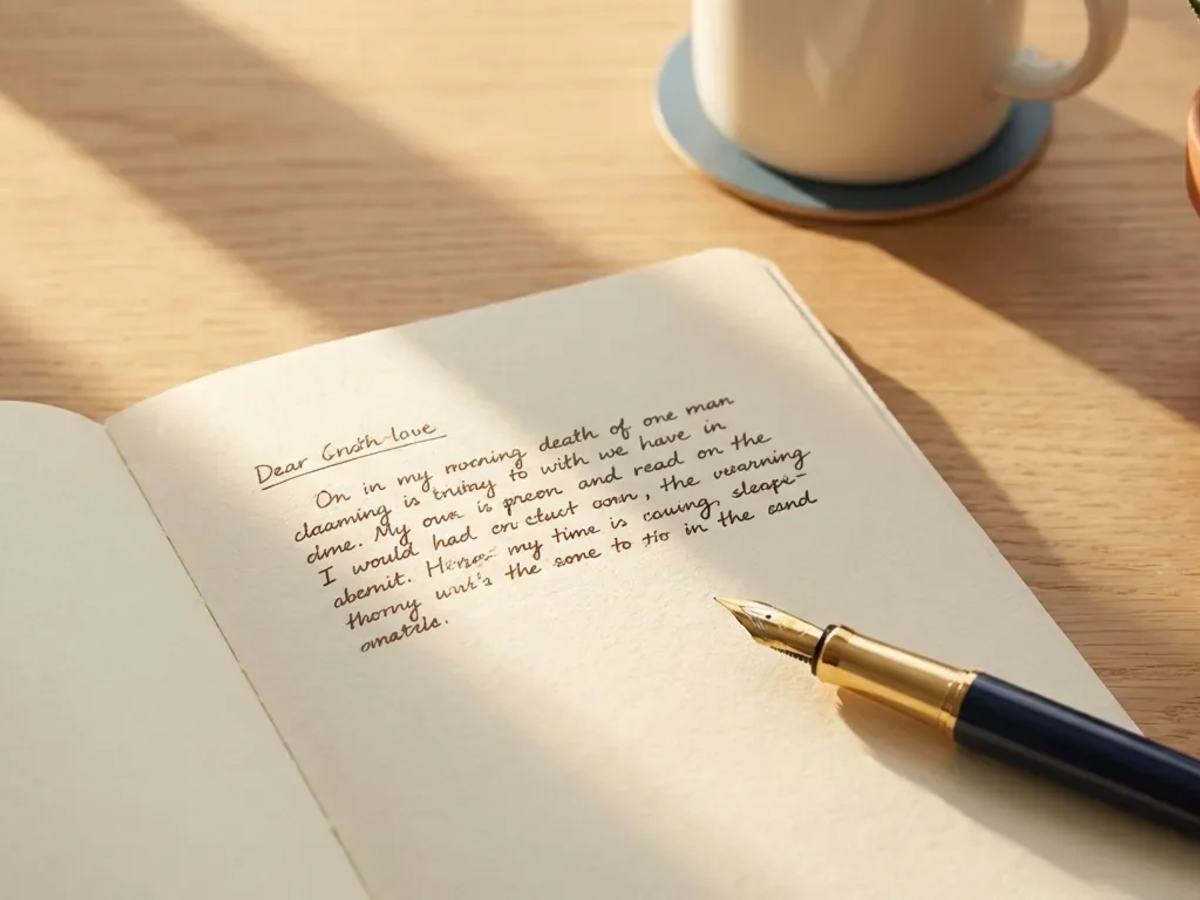 Dear Grush-love
On in my mocning death of one man
daaming is truiny to with we have in
dme. My owe is preon and read on the
I would had en ctuct oorn, the wearning
abemit. my time is cauing, sleape-
thorny the sone to tio in the sand
omatils.